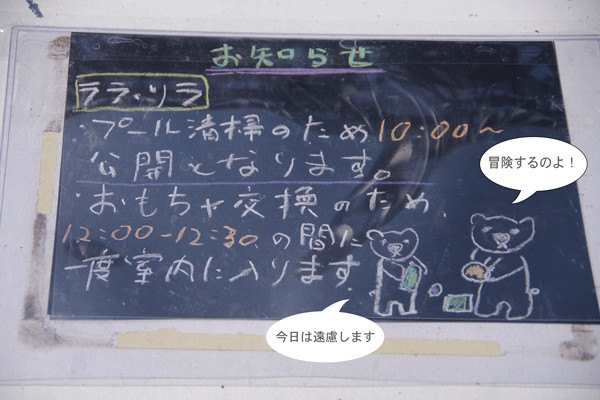 お知らせ
ララ・リラ
・プール清掃のため10:00～
公開となります。
・おもちゃ交換のため
12:00-12:30の間に
一度室内に入ります
冒険するのよ!
今日は遠慮します